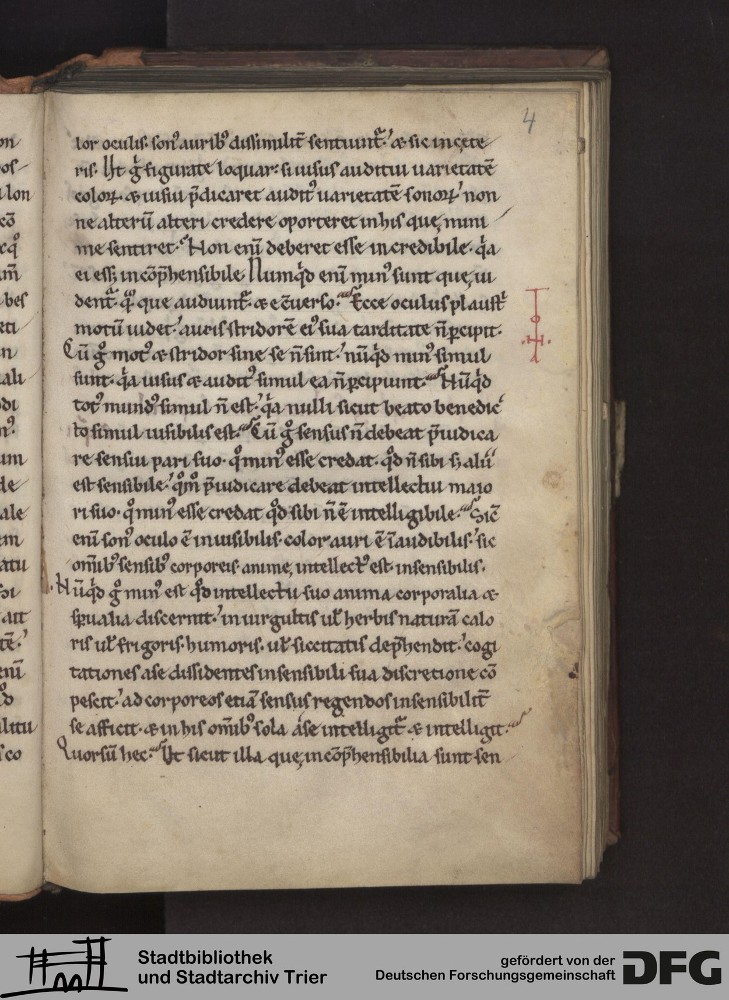 4
lor oculis. son᷒ aurib᷒ dissimilit̄ sentiunt᷑. ⁊ sic in cęte
ris. Ut g̊ figurate loquar: si uisus auditui uarietatē
coloꝝ. ⁊ uisui p̄dicaret audit᷒ uarietatē sonoꝝ. non
ne alterū alteri credere oporteret in his quę mini
me sentiret. Non enī deberet esse incredibile. q̄a
ei ess& incōp̄hensibile Numq̄d enī min᷒ sunt quę ui
dent᷑. q̄ que audiunt᷑. ⁊ ecōuerso. Ecce oculus plaustͥ
motū uidet. auris stridorē ei᷒ sua tarditate n̄ ꝑcipit.
Cū g̊ mot᷒ ⁊ stridor sine se n̄ sint. nūq̄d min᷒ simul
sunt. q̄a uisus ⁊ audit᷒ simul ea n̄ ꝑcipiunt. Nūq̄d
tot᷒ mund᷒ simul n̄ est. q̄a nulli sicut beato benedic
to simul uisibilis est. Cū g̊ sensus n̄ debeat p̄iudica
re sensui pari suo. q̊ min᷒ esse credat. qd̄ n̄ sibi s; alii
est sensibile. q̊m̊ p̄iudicare debeat intellectui maio
ri suo. q̊ min᷒ esse credat qd̄ sibi n̄ ē intelligibile. Sic̄
enī son᷒ oculo ē inuisibilis. color auri ē īaudibilis. sic
om̄ib᷒ sensib᷒ corporeis animę intellect᷒ est insensibilis.
Nūq̄d g̊ min᷒ est qd̄ intellectu suo anima corporalia ⁊
sp̄ualia discernit. in uirgultis ul̄ herbis naturā calo
ris ul̄ frigoris. humoris. ul̄ siccitatis dep̄hendit. cogi
tationes a se dissidentes insensibili sua discretione cō
pescit. ad corporeos etiā sensus regendos insensibilit̄
se afficit. ⁊ in his om̄ib᷒ sola a se intelligit᷑ ⁊ intelligit.
Quorsū hec. Ut sicut illa quę incōp̄hensibilia sunt sen
Stadtbibliothek
und Stadtarchiv Trier
gefördert von der
Deutschen Forschungsgemeinschaft
DFG